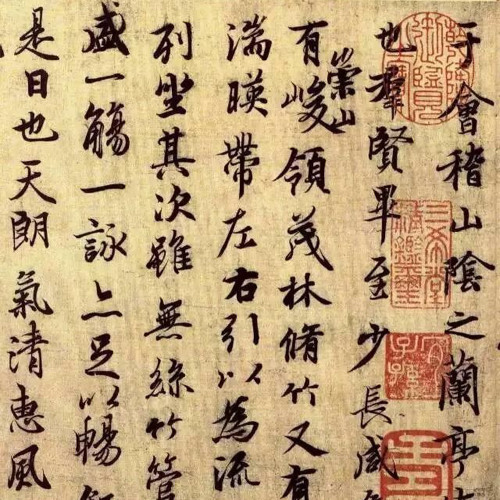 于會稽山陰之蘭亭
也羣賢畢至少長咸
有崇山峻領茂林脩竹又有
湍暎帶左右引以為流
列坐其次雖無絲竹管
盛一觴一詠亦足以暢
是日也天朗氣清惠風
三希堂
精鑑璽
宜子孫